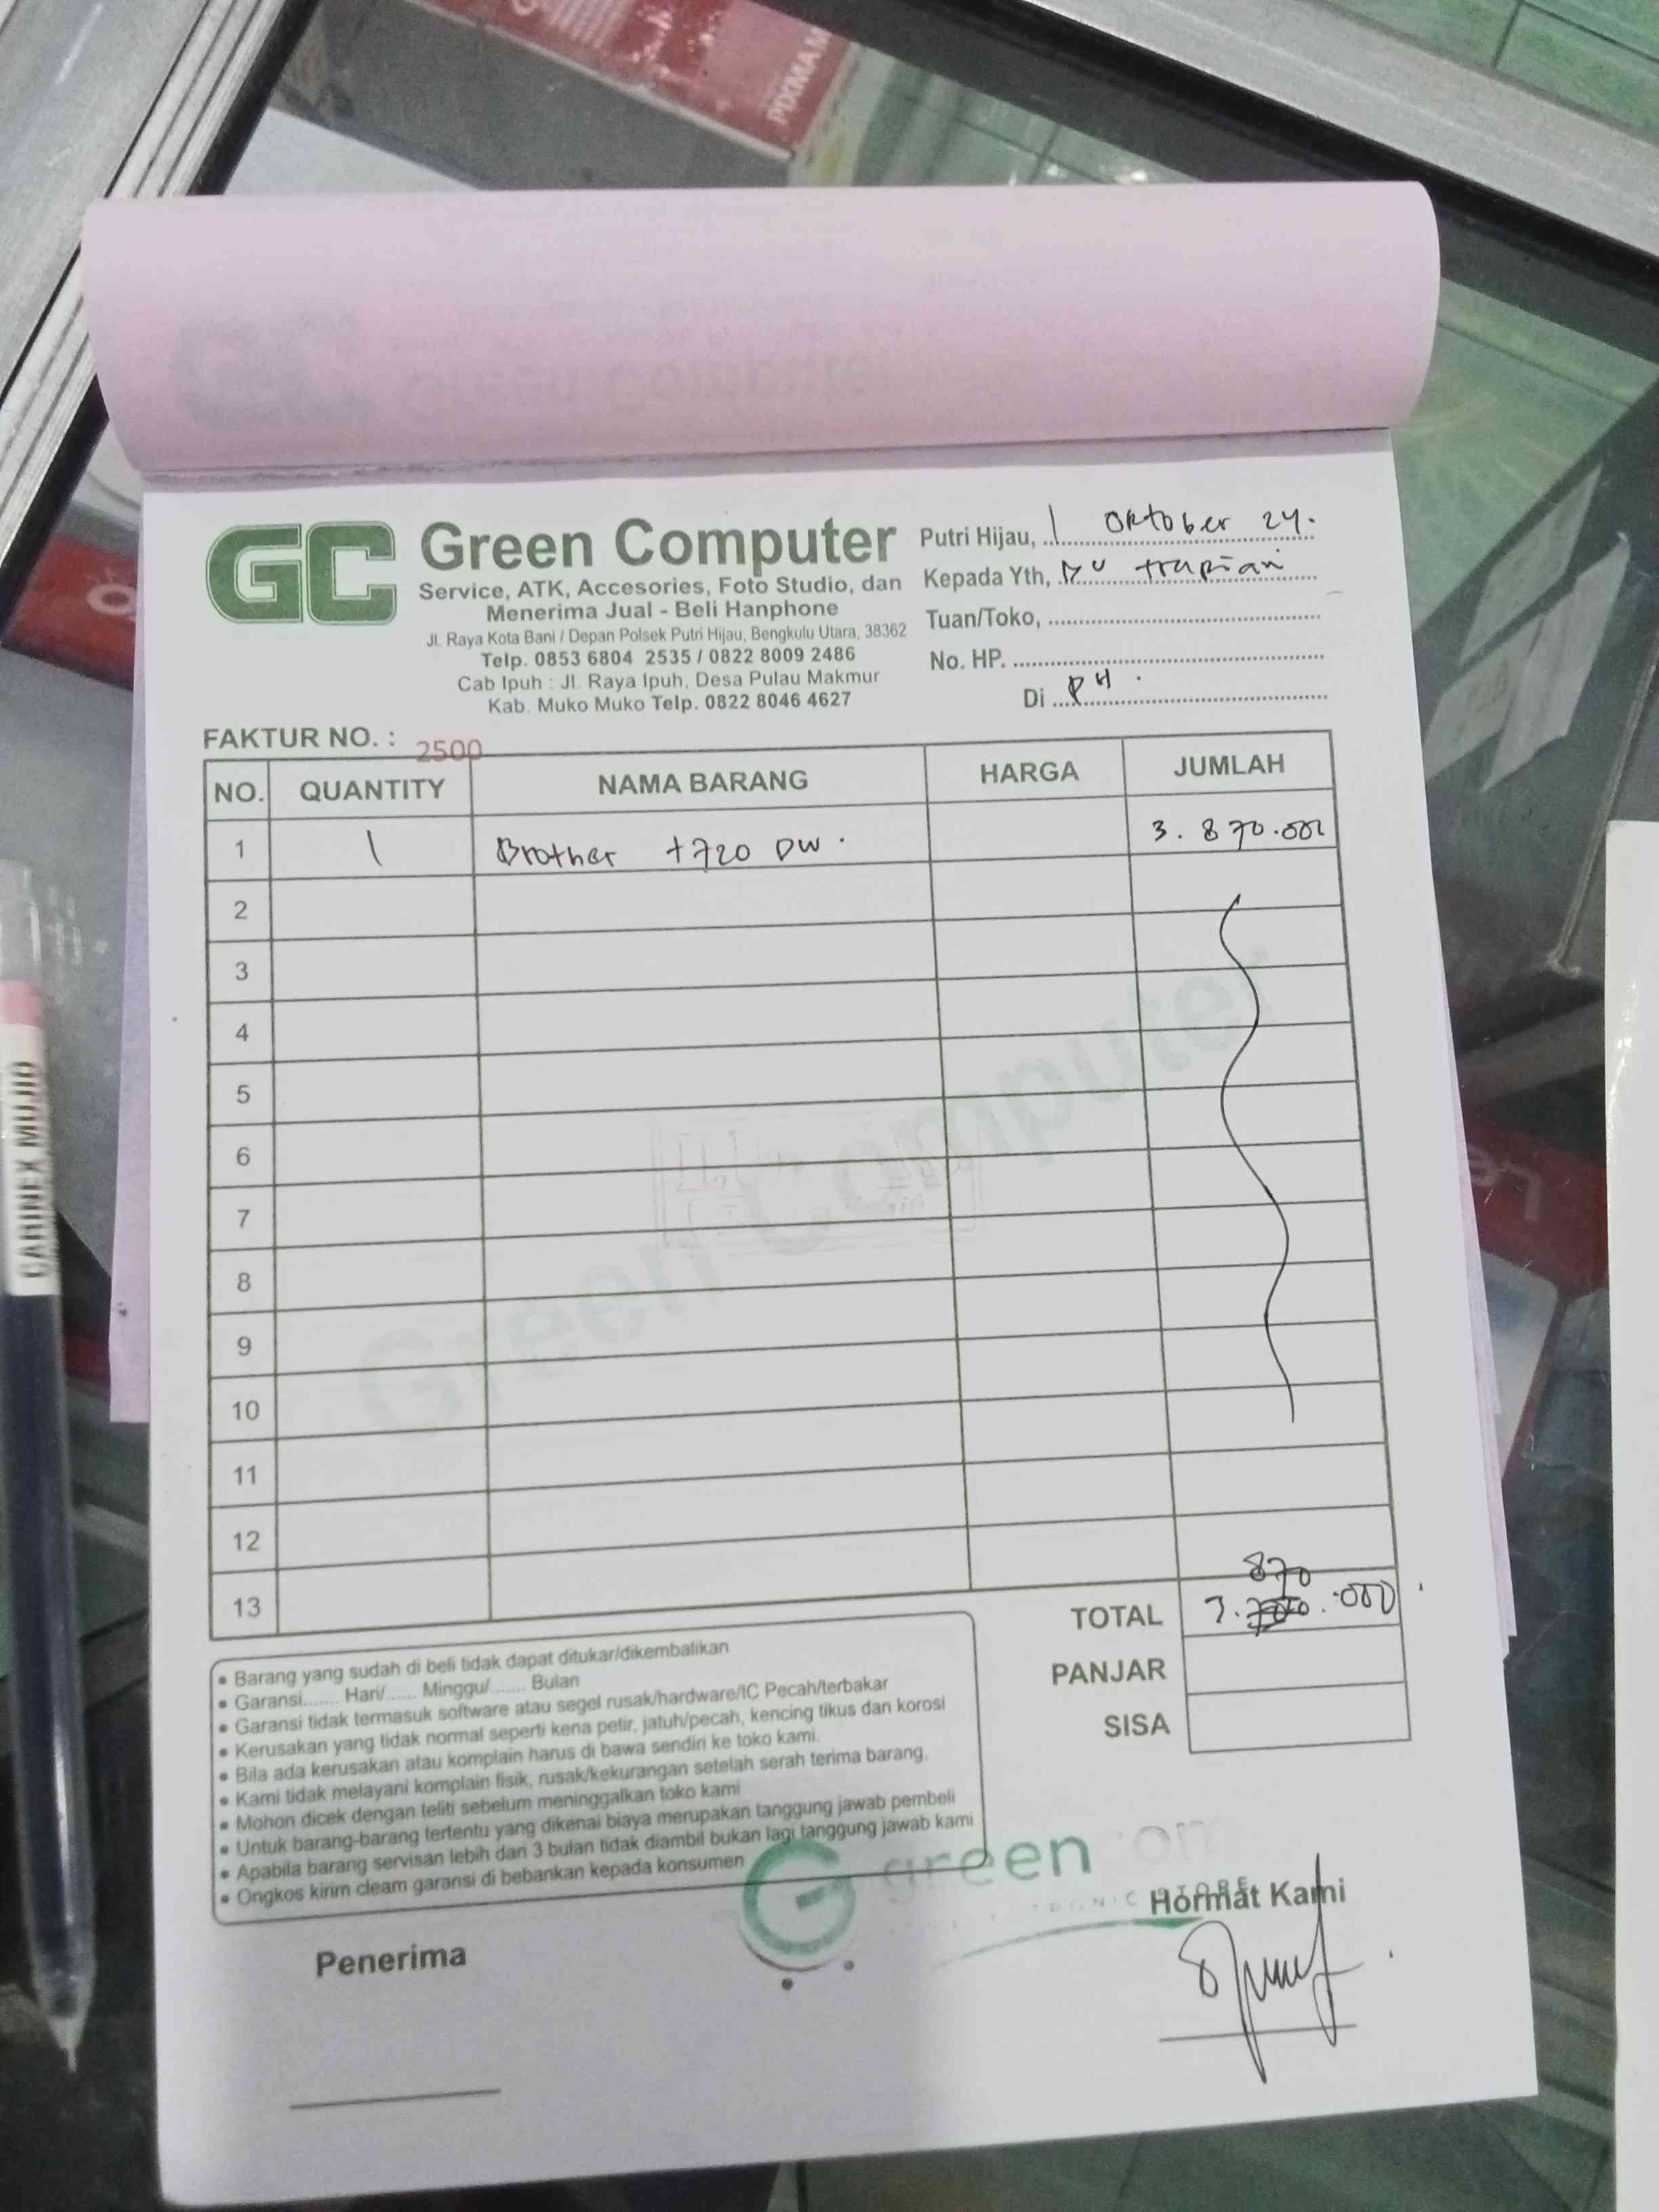 PIXMA
GC
Green Computer
Service, ATK, Accesories, Foto Studio, dan
Menerima Jual - Beli Hanphone
Jl. Raya Kota Bani / Depan Polsek Putri Hijau, Bengkulu Utara, 38362
Telp. 0853 6804 2535 / 0822 8009 2486
Cab Ipuh : Jl. Raya Ipuh, Desa Pulau Makmur
Kab. Muko Muko Telp. 0822 8046 4627
Putri Hijau, 1 Oktober 24.
Kepada Yth,
Tuan/Toko,
No. HP.
Di PH.
FAKTUR NO. : 2500
NO. QUANTITY NAMA BARANG HARGA JUMLAH
1 1 Brother t720 DW. 3.870.000
2
3
4
5
6
7
8
9
10
11
12
13
Green Computer
870
TOTAL 3. .000
PANJAR
SISA
• Barang yang sudah di beli tidak dapat ditukar/dikembalikan
• Garansi....... Hari/...... Minggu/....... Bulan
• Garansi tidak termasuk software atau segel rusak/hardware/IC Pecah/terbakar
• Kerusakan yang tidak normal seperti kena petir, jatuh/pecah, kencing tikus dan korosi
• Bila ada kerusakan atau komplain harus di bawa sendiri ke toko kami.
• Kami tidak melayani komplain fisik, rusak/kekurangan setelah serah terima barang.
• Mohon dicek dengan teliti sebelum meninggalkan toko kami
• Untuk barang-barang tertentu yang dikenai biaya merupakan tanggung jawab pembeli
• Apabila barang servisan lebih dari 3 bulan tidak diambil bukan lagi tanggung jawab kami
• Ongkos kirim cleam garansi di bebankan kepada konsumen
green
Hormat Kami
Penerima